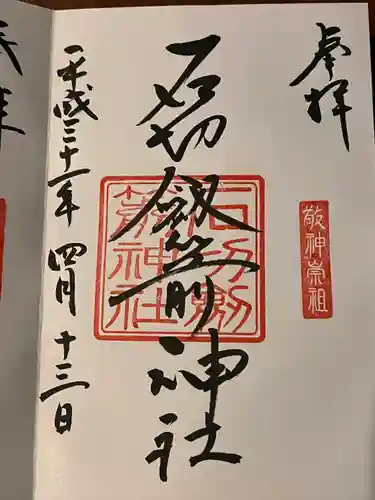 奉拝
敬神崇祖
石切劔箭神社
石切劔
箭神社
平成三十一年四月十三日